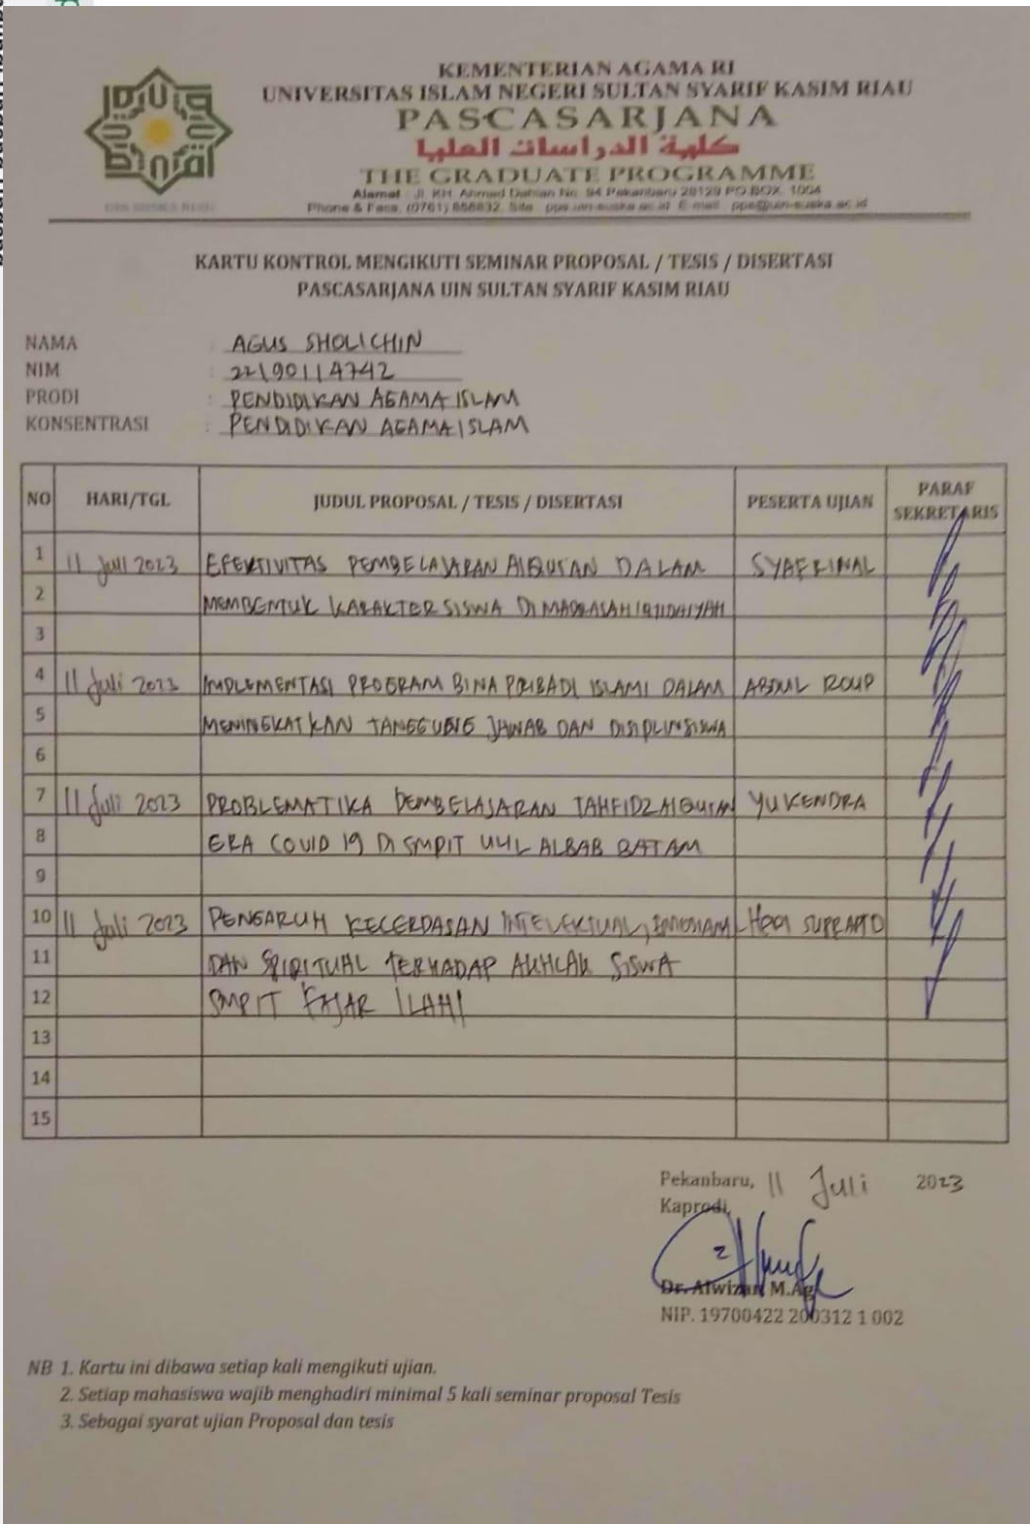 KEMENTERIAN AGAMA RI
UNIVERSITAS ISLAM NEGERI SULTAN SYARIF KASIM RIAU
PASCASARJANA
كلية الدراسات العليا
THE GRADUATE PROGRAMME
Alamat : Jl. KH. Ahmad Dahlan No. 94 Pekanbaru 28129 PO.BOX. 1004
Phone & Facs. (0761) 858832. Site : pps.uin-suska.ac.id E-mail : pps@uin-suska.ac.id
UIN SUSKA RIAU
KARTU KONTROL MENGIKUTI SEMINAR PROPOSAL / TESIS / DISERTASI
PASCASARJANA UIN SULTAN SYARIF KASIM RIAU
NAMA : AGUS SHOLICHIN
NIM : 22190114742
PRODI : PENDIDIKAN AGAMA ISLAM
KONSENTRASI : PENDIDIKAN AGAMA ISLAM
NO HARI/TGL JUDUL PROPOSAL / TESIS / DISERTASI PESERTA UJIAN PARAF SEKRETARIS
1 11 Juli 2023 EFEKTIVITAS PEMBELAJARAN ALQURAN DALAM SYAFRINAL
2 MEMBENTUK KARAKTER SISWA DI MADRASAH IBTIDAIYAH
3
4 11 Juli 2023 IMPLEMENTASI PROGRAM BINA PRIBADI ISLAMI DALAM ABDUL ROUP
5 MENINGKATKAN TANGGUNG JAWAB DAN DISIPLIN SISWA
6
7 11 Juli 2023 PROBLEMATIKA PEMBELAJARAN TAHFIDZ ALQURAN YUKENDRA
8 ERA COVID 19 DI SMPIT ULIL ALBAB BATAM
9
10 11 Juli 2023 PENGARUH KECERDASAN INTELEKTUAL, EMOSIANAL HEDI SUPRAPTO
11 DAN SPIRITUAL TERHADAP AKHLAK SISWA
12 SMPIT FAJAR ILAHI
13
14
15
Pekanbaru, 11 Juli 2023
Kaprodi,
Dr. Alwizar M.Ag
NIP. 19700422 200312 1 002
NB 1. Kartu ini dibawa setiap kali mengikuti ujian.
2. Setiap mahasiswa wajib menghadiri minimal 5 kali seminar proposal Tesis
3. Sebagai syarat ujian Proposal dan tesis